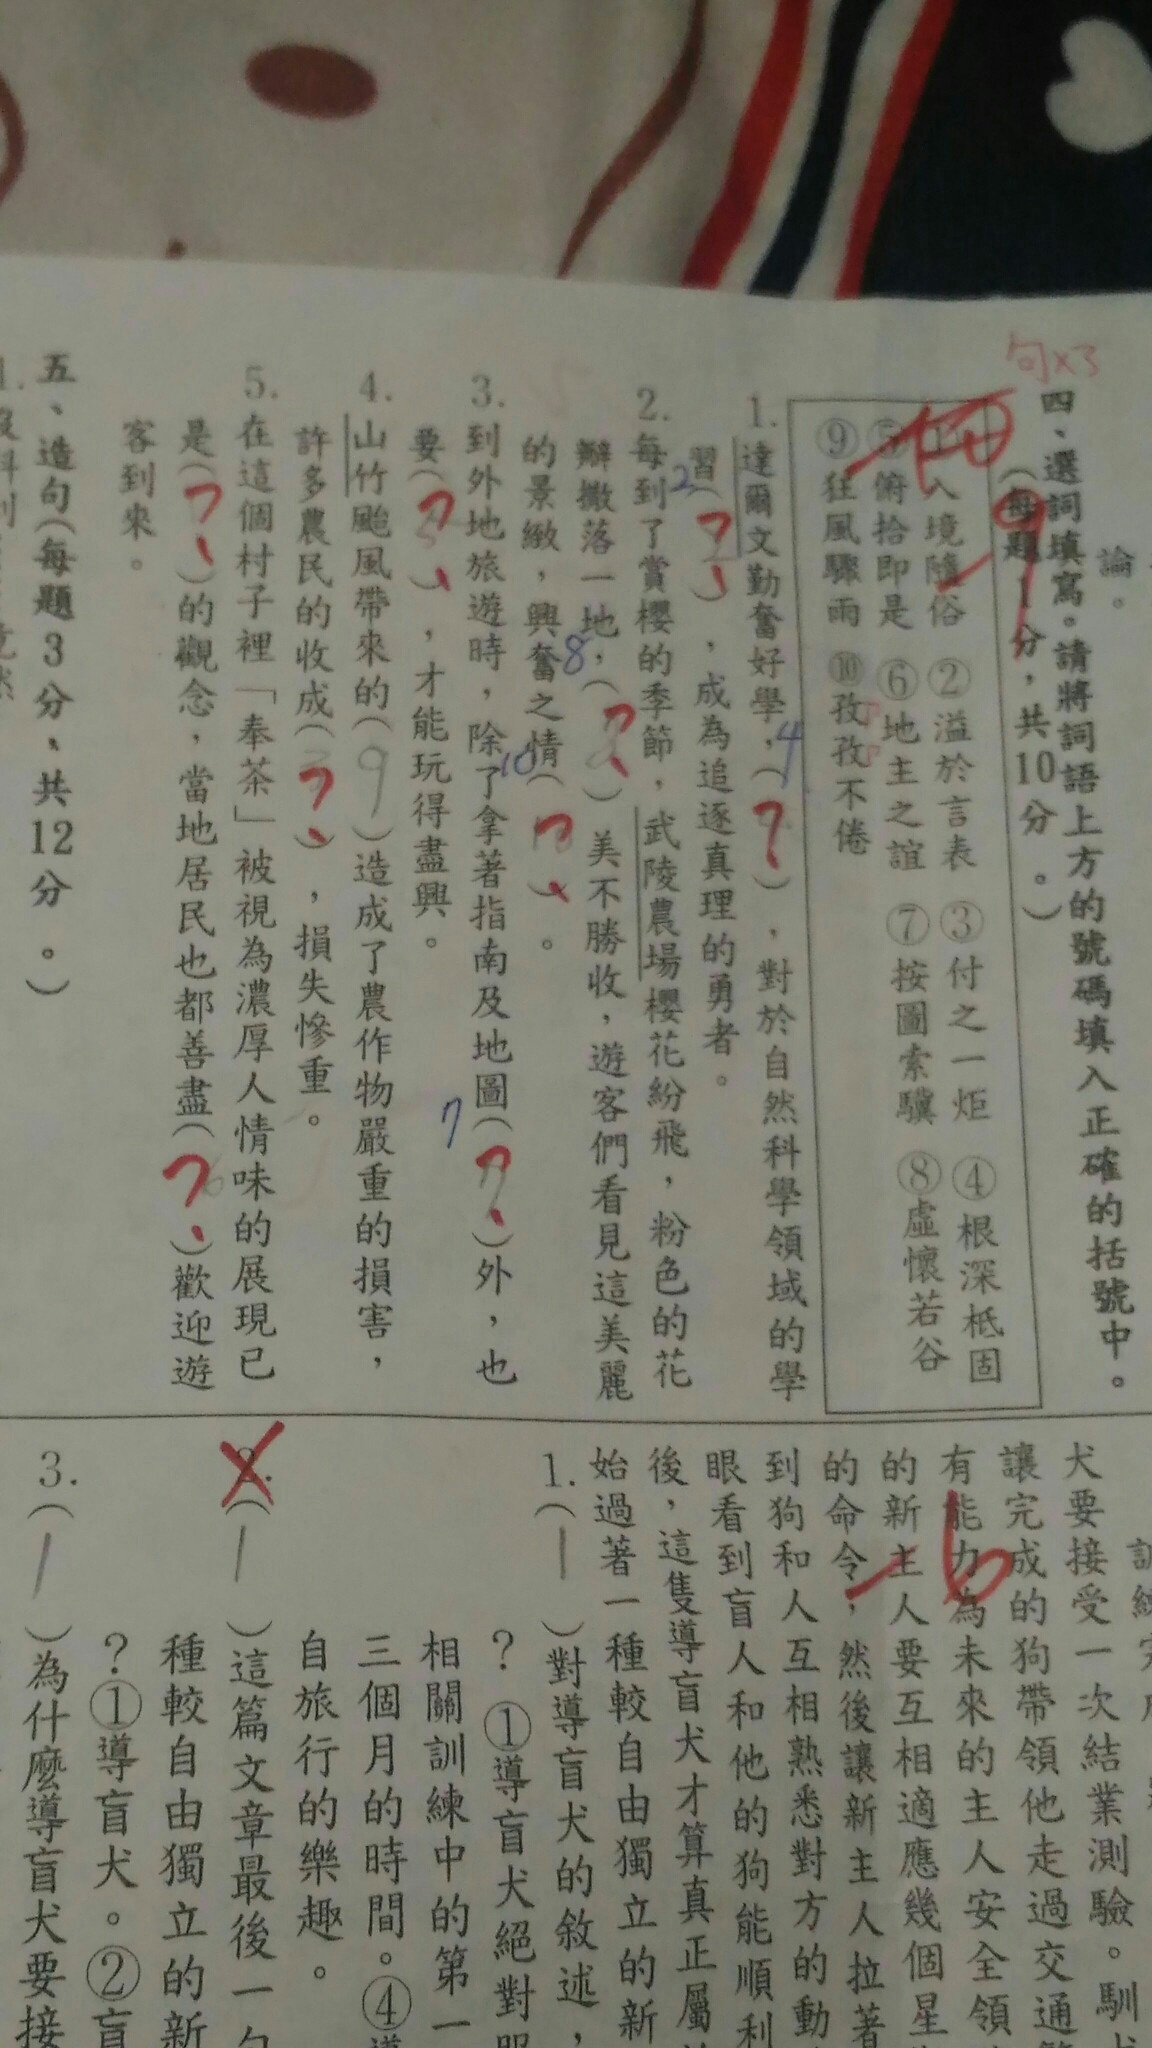 論。
句×3
四、選詞填寫。請將詞語上方的號碼填入正確的括號中。
(每題1分，共10分。)
①入境隨俗 ②溢於言表 ③付之一炬 ④根深柢固
⑤俯拾即是 ⑥地主之誼 ⑦按圖索驥 ⑧虛懷若谷
⑨狂風驟雨 ⑩孜孜不倦
1.達爾文勤奮好學，( )，對於自然科學領域的學
習( )，成為追逐真理的勇者。
2.每到了賞櫻的季節，武陵農場櫻花紛飛，粉色的花
瓣撒落一地，( )美不勝收，遊客們看見這美麗
的景緻，興奮之情( )。
3.到外地旅遊時，除了拿著指南及地圖( )外，也
要( )，才能玩得盡興。
4.山竹颱風帶來的(9)造成了農作物嚴重的損害，
許多農民的收成( )，損失慘重。
5.在這個村子裡「奉茶」被視為濃厚人情味的展現已
是( )的觀念，當地居民也都善盡( )歡迎遊
客到來。
五、造句(每題3分、共12分。)
犬要接受一次結業測驗。馴
讓完成的狗帶領他走過交通
有能力為未來的主人安全領
的新主人要互相適應幾個星
的命令，然後讓新主人拉著
到狗和人互相熟悉對方的動
眼看到盲人和他的狗能順利
後，這隻導盲犬才算真正屬
始過著一種較自由獨立的新
1.(1)對導盲犬的敘述，
？①導盲犬絕對
相關訓練中的第一
三個月的時間。④
自旅行的樂趣。
2.(1)這篇文章最後一
種較自由獨立的新
？①導盲犬。②盲
3.(1)為什麼導盲犬要接